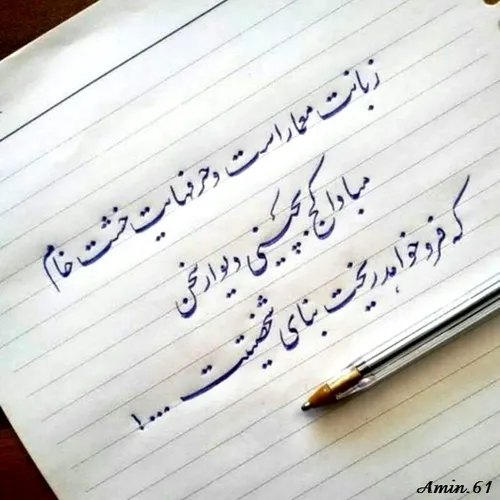 زبانت معمار است و حرفهایت خشت خام
مبادا کج بچینی دیوار سخن
که فرو خواهد ریخت بنای شخصیتت ... !
Amin.61